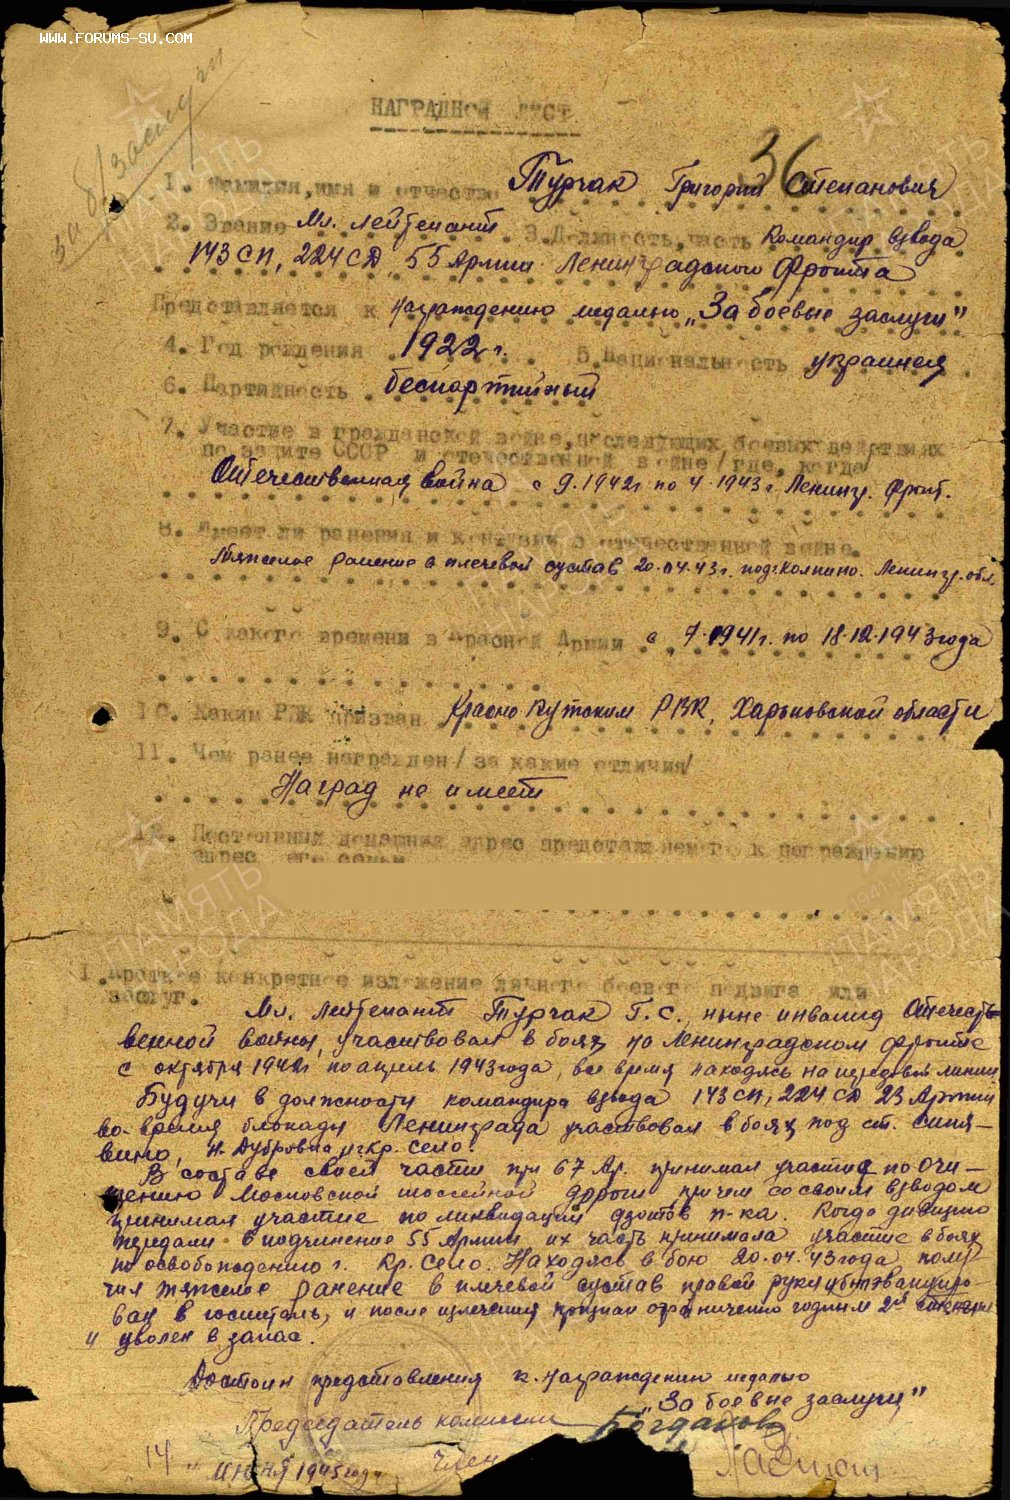 WWW.FORUMS-SU.COM
За б/заслуги
НАГРАДНОЙ ЛИСТ
36
1. Фамилия, имя и отчество Турчак Григорий Степанович
2. Звание Мл. лейтенант 3. Должность, часть Командир взвода
143 СП, 224 СД 55 Армии Ленинградского Фронта
Представляется к награждению медалью „За боевые заслуги"
4. Год рождения 1922 г. 5. Национальность украинец
6. Партийность беспартийный
7. Участие в гражданской войне, последующих боевых действиях
по защите СССР и отечественной войне /где, когда/
Отечественная война с 9.1942г по 4.1943г Ленингр. фронт.
8. Имеет ли ранения и контузии в отечественной войне.
Тяжелое ранение в плечевой сустав 20.04.43г. под г. Колпино. Ленингр. обл.
9. С какого времени в Красной Армии с 7.1941г. по 18.12.1943 года
10. Каким РВК призван Краснокутским РВК, Харьковской области
11. Чем ранее награжден /за какие отличия/
Наград не имеет
12. Постоянный домашний адрес представляемого к награждению
адрес его семьи
I. Краткое конкретное изложение личного боевого подвига или
заслуг.
Мл. лейтенант Турчак Г.С., ныне инвалид Отечест-
венной войны, участвовал в боях на Ленинградском фронте
с октября 1942г по апрель 1943 года, все время находясь на передовой линии
Будучи в должности командира взвода 143 СП, 224 СД 23 Армии
во-время блокады Ленинграда участвовал в боях под ст. Синя-
вино, н. Дубровка, и г Кр. Село.
В составе своей части при 67 Ар. принимал участие по очи-
щению Московской шоссейной дороги причем со своим взводом
принимал участие по ликвидации дзотов п-ка. Когда дивизию
передали в подчинение 55 Армии их часть принимала участие в боях
по освобождению г. Кр. Село. Находясь в бою 20.04.43 года полу-
чил тяжелое ранение в плечевой сустав правой руки эвакуиро
ван в госпиталь, и после излечения признан ограниченно годным 2й
и уволен в запас.
Достоин представления к награждению медалью
„За боевые заслуги"
Председатель комиссии Богданов
Член
14 " июня 1945 года